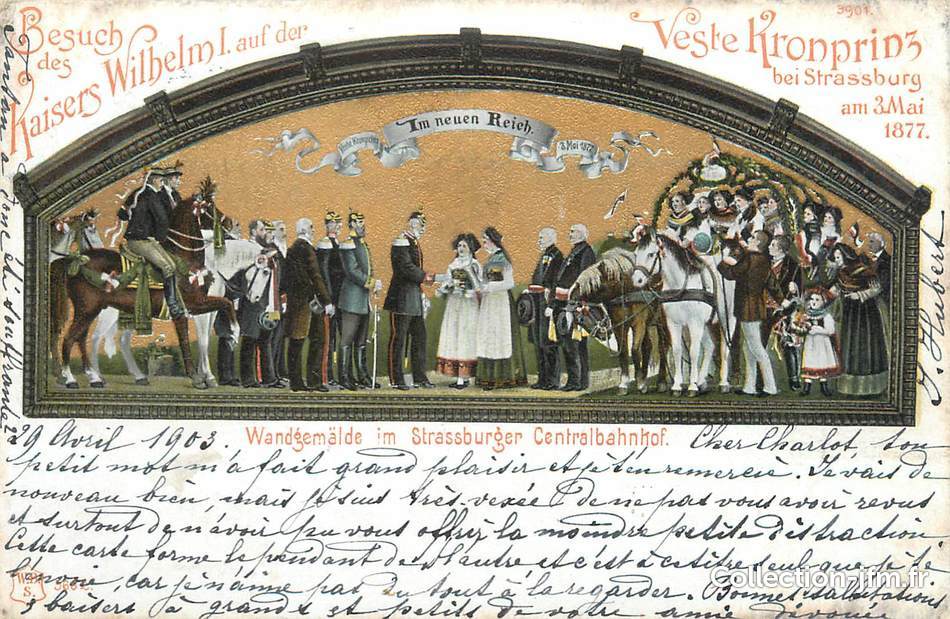 3901.
Besuch des
Kaisers Wilhelm I. auf der
Veste Kronprinz
bei Strassburg
am 3. Mai
1877.
Im neuen Reich.
Veste Kronprinz
3. Mai 1877
Wandgemälde im Strassburger Centralbahnhof.
29 Avril 1903. Cher Charlot, ton
petit mot m'a fait grand plaisir et je t'en remercie. Je vais de
nouveau bien, mais je suis très vexée de ne pas vous avoir revus
et surtout de n'avoir pu vous offrir la moindre petite distraction.
Cette carte forme le pendant de l'autre et c'est à ce titre seul que je te
l'envoie, car je n'aime pas du tout à la regarder. Bonnes salutations
& baisers à grands et petits de votre amie dévouée
J. Hubert
Tantan a
est souffrante
S.
Collection-jfm.fr